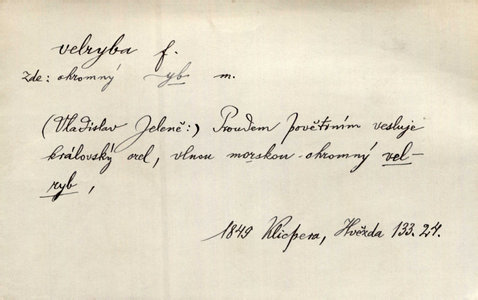 velryba f.
Zde: ohromný -yb m.
(Vladislav Jeleně:) Proudem povětrním vesluje
královský orel, vlnou morskou ohromný vel-
ryb,
1849 Klicpera, Hvězda 133.24.